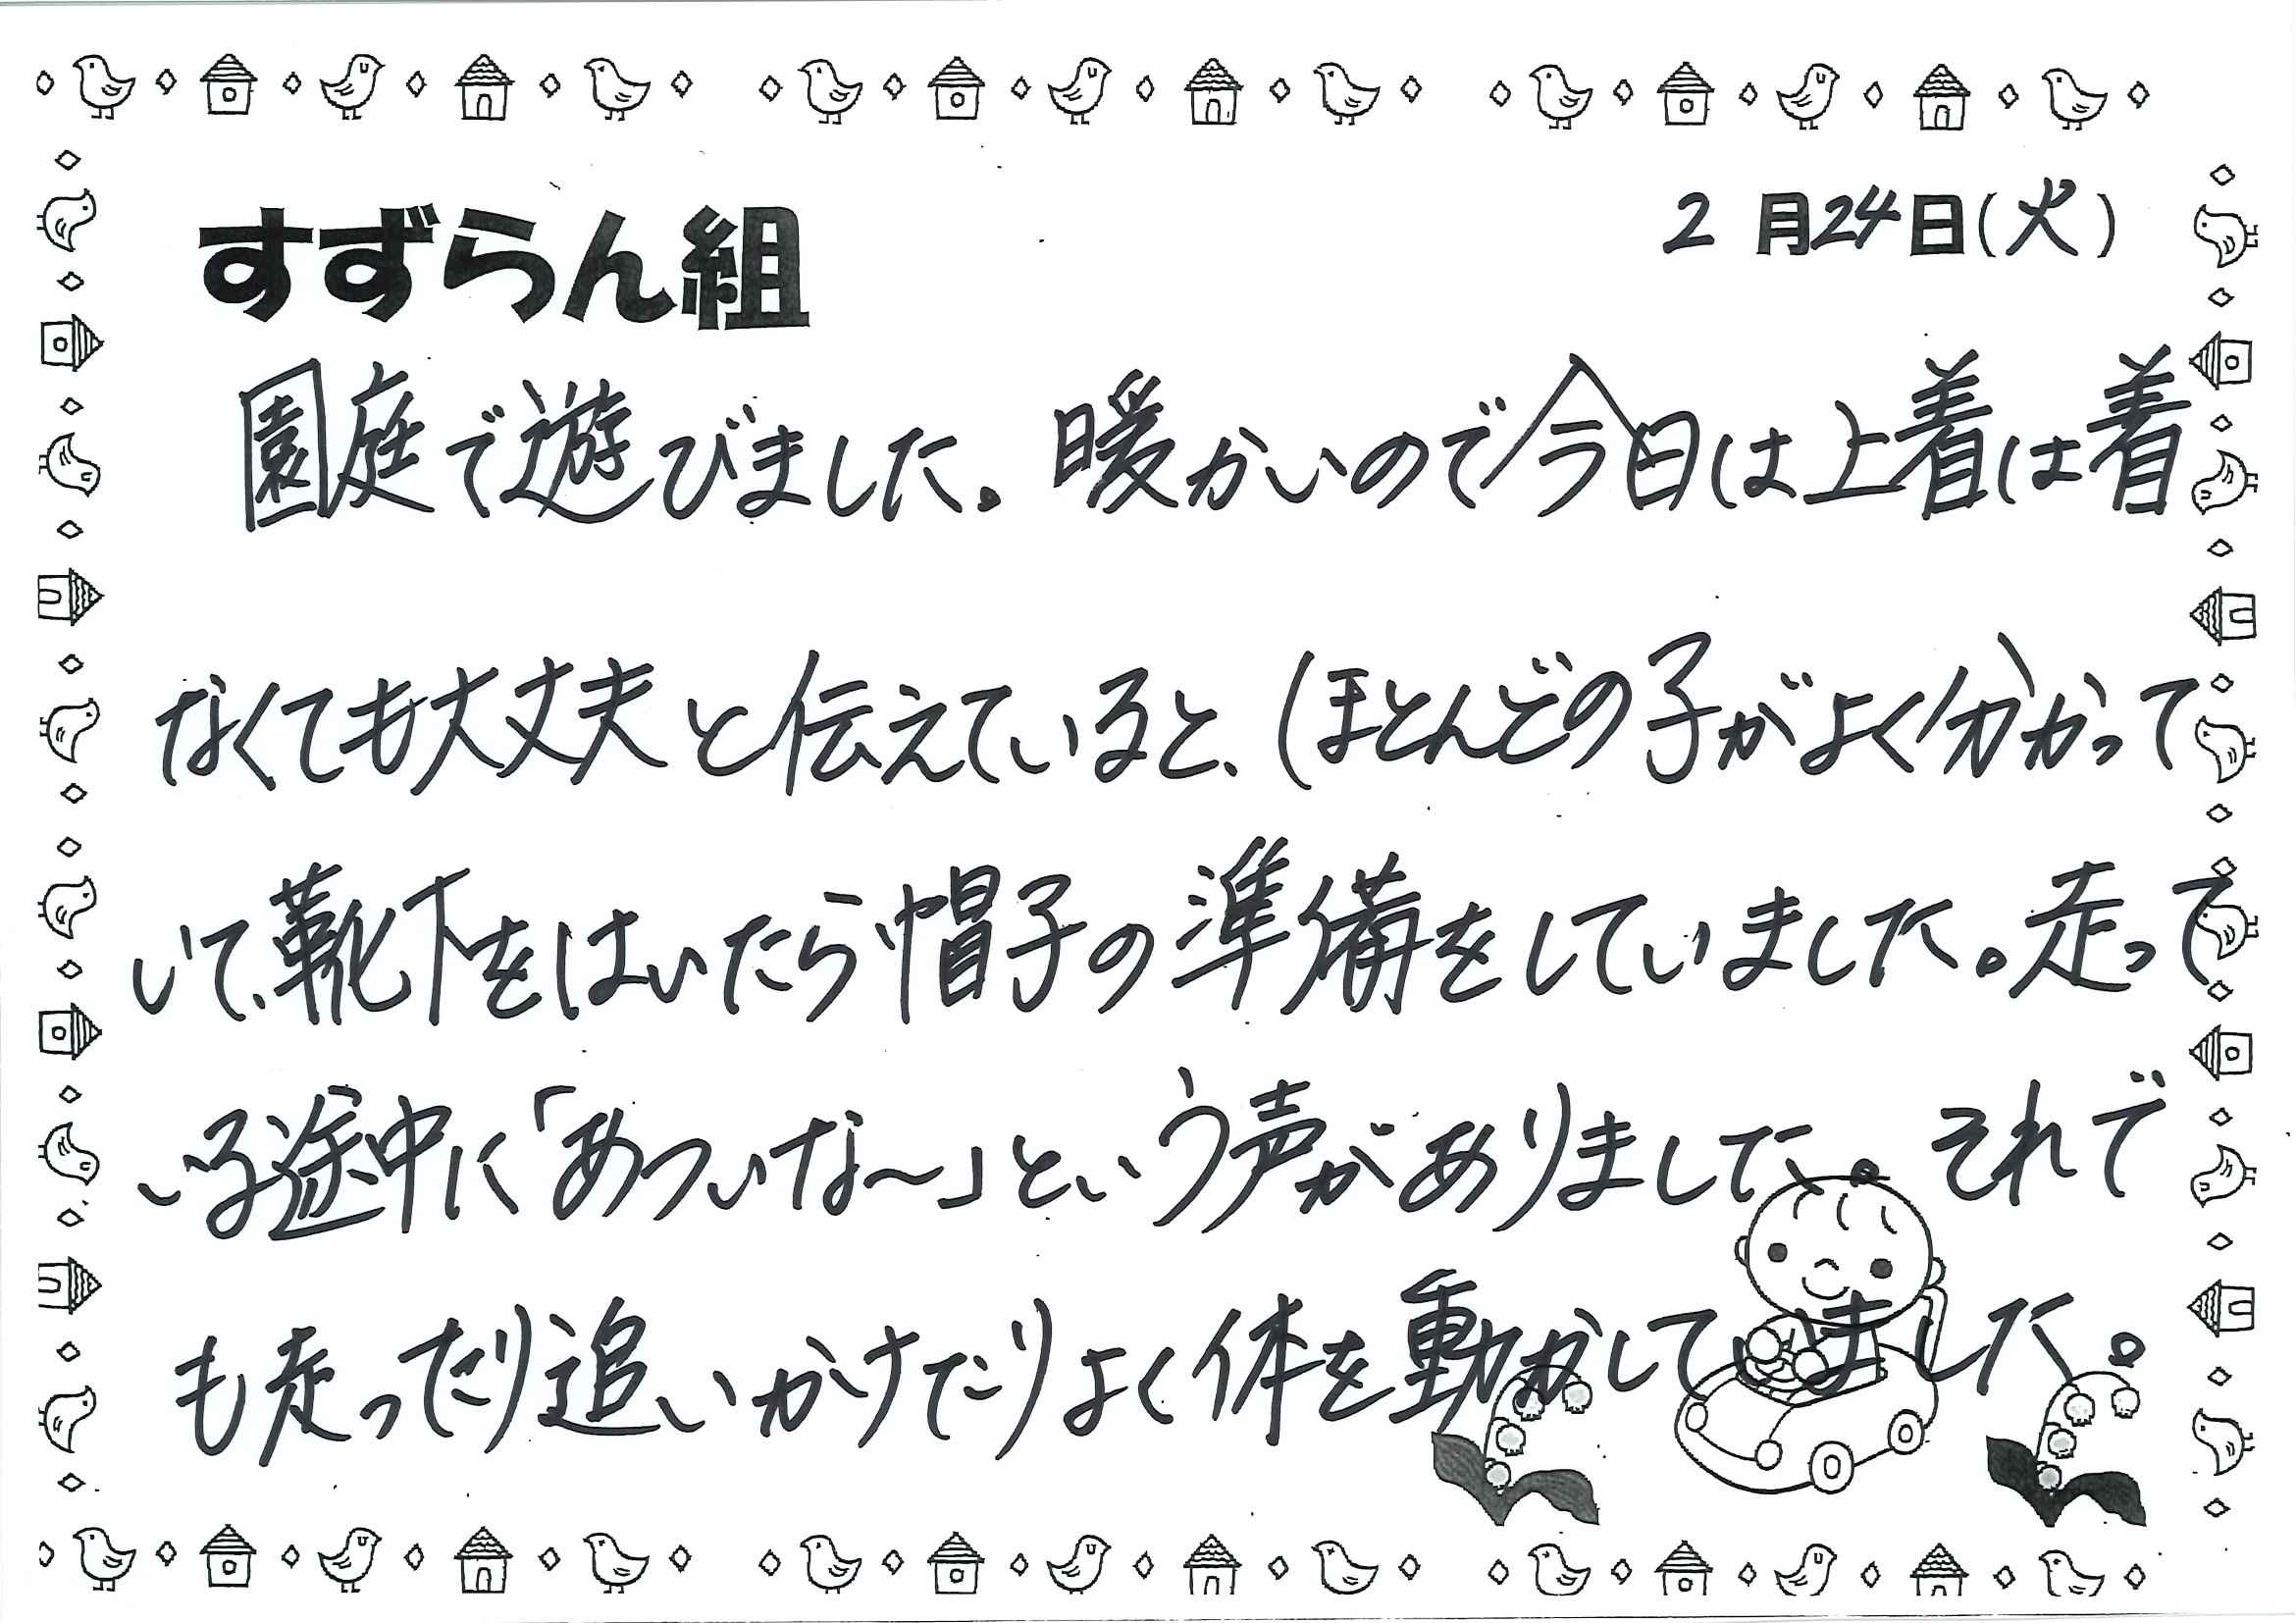 すずらん組
2月24日(火)
園庭で遊びました。暖かいので今日は上着は着
なくても大丈夫と伝えていると、ほとんどの子がよく分かって
いて、靴下をはいたら帽子の準備をしていました。走って
いる途中に「あついな〜」という声がありました。それで
も走ったり追いかけたりよく体を動かしていました。